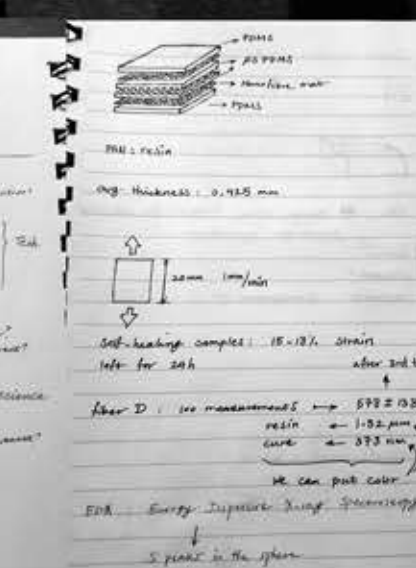 PDMS
PDMS
Nanofiber mat
PDMS
PAN : resin
avg. thickness : 0.425 mm
20mm 1mm/min
self-healing samples : 15-18% strain
left for 24h
after 3rd
fiber D : 100 measurements → 578 ±
resin ← 1.32 μm
cure ← 373 nm
We can put color
EDX : Energy Dispersive X-ray Spectroscopy
↓
S peaks in the sphere